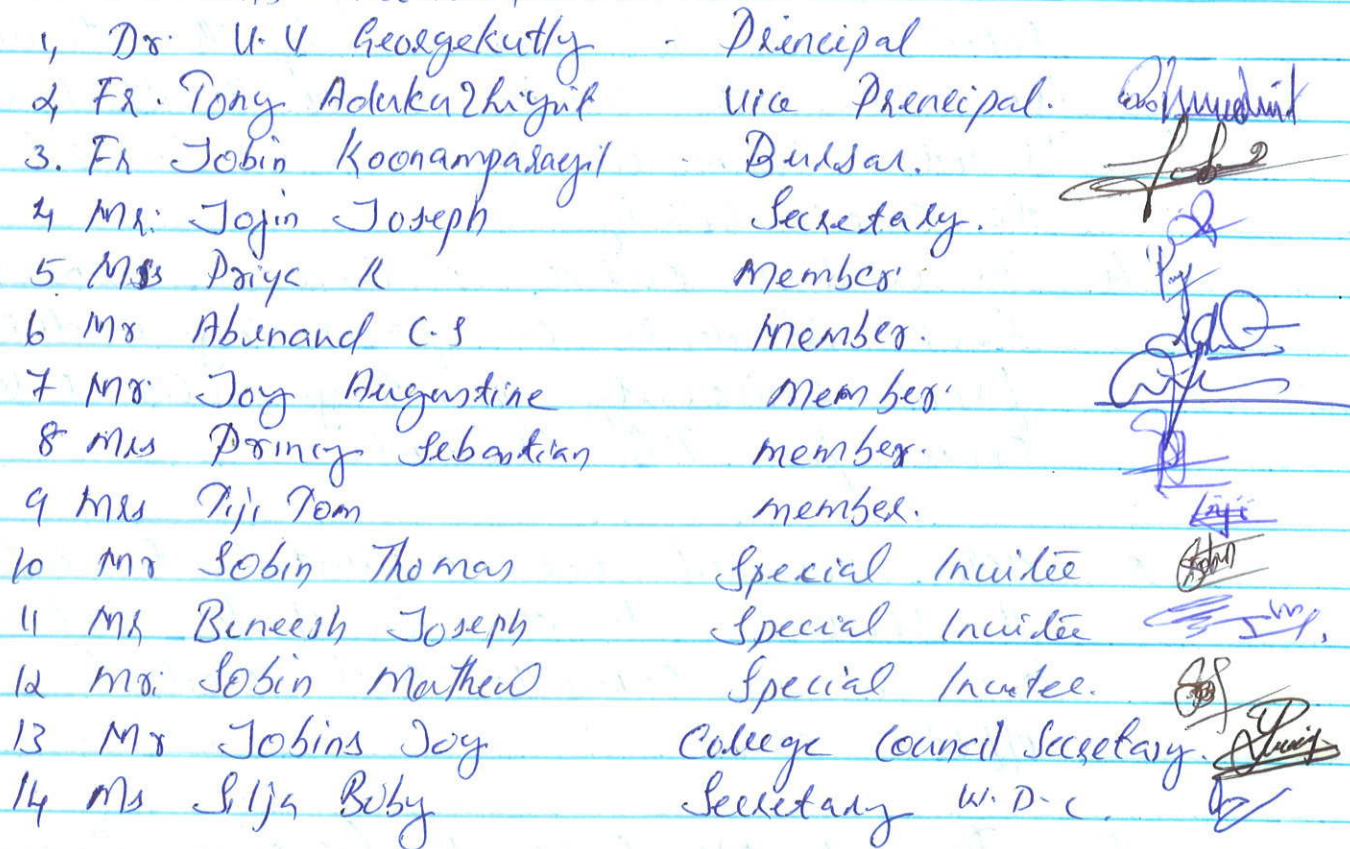 1, Dr. U.V Georgekutty - Principal
2, Fr. Tony Adukazhiyil Vice Principal.
3. Fr Jobin Koonamparayil - Bursar.
4 Mr. Jojin Joseph Secretary.
5 Mrs Priya R Member
6 Mr Abinand C.S Member.
7 Mr. Joy Augustine Member.
8 Mrs Princy Sebastian member.
9 Mrs Tiji Tom member.
10 Mr Sobin Thomas Special Invitee
11 Mr Bineesh Joseph Special Invitee
12 Mr. Sobin Mathew Special Invitee.
13 Mr Jobins Joy College Council Secretary.
14 Ms Silja Boby Secretary W.D.C.